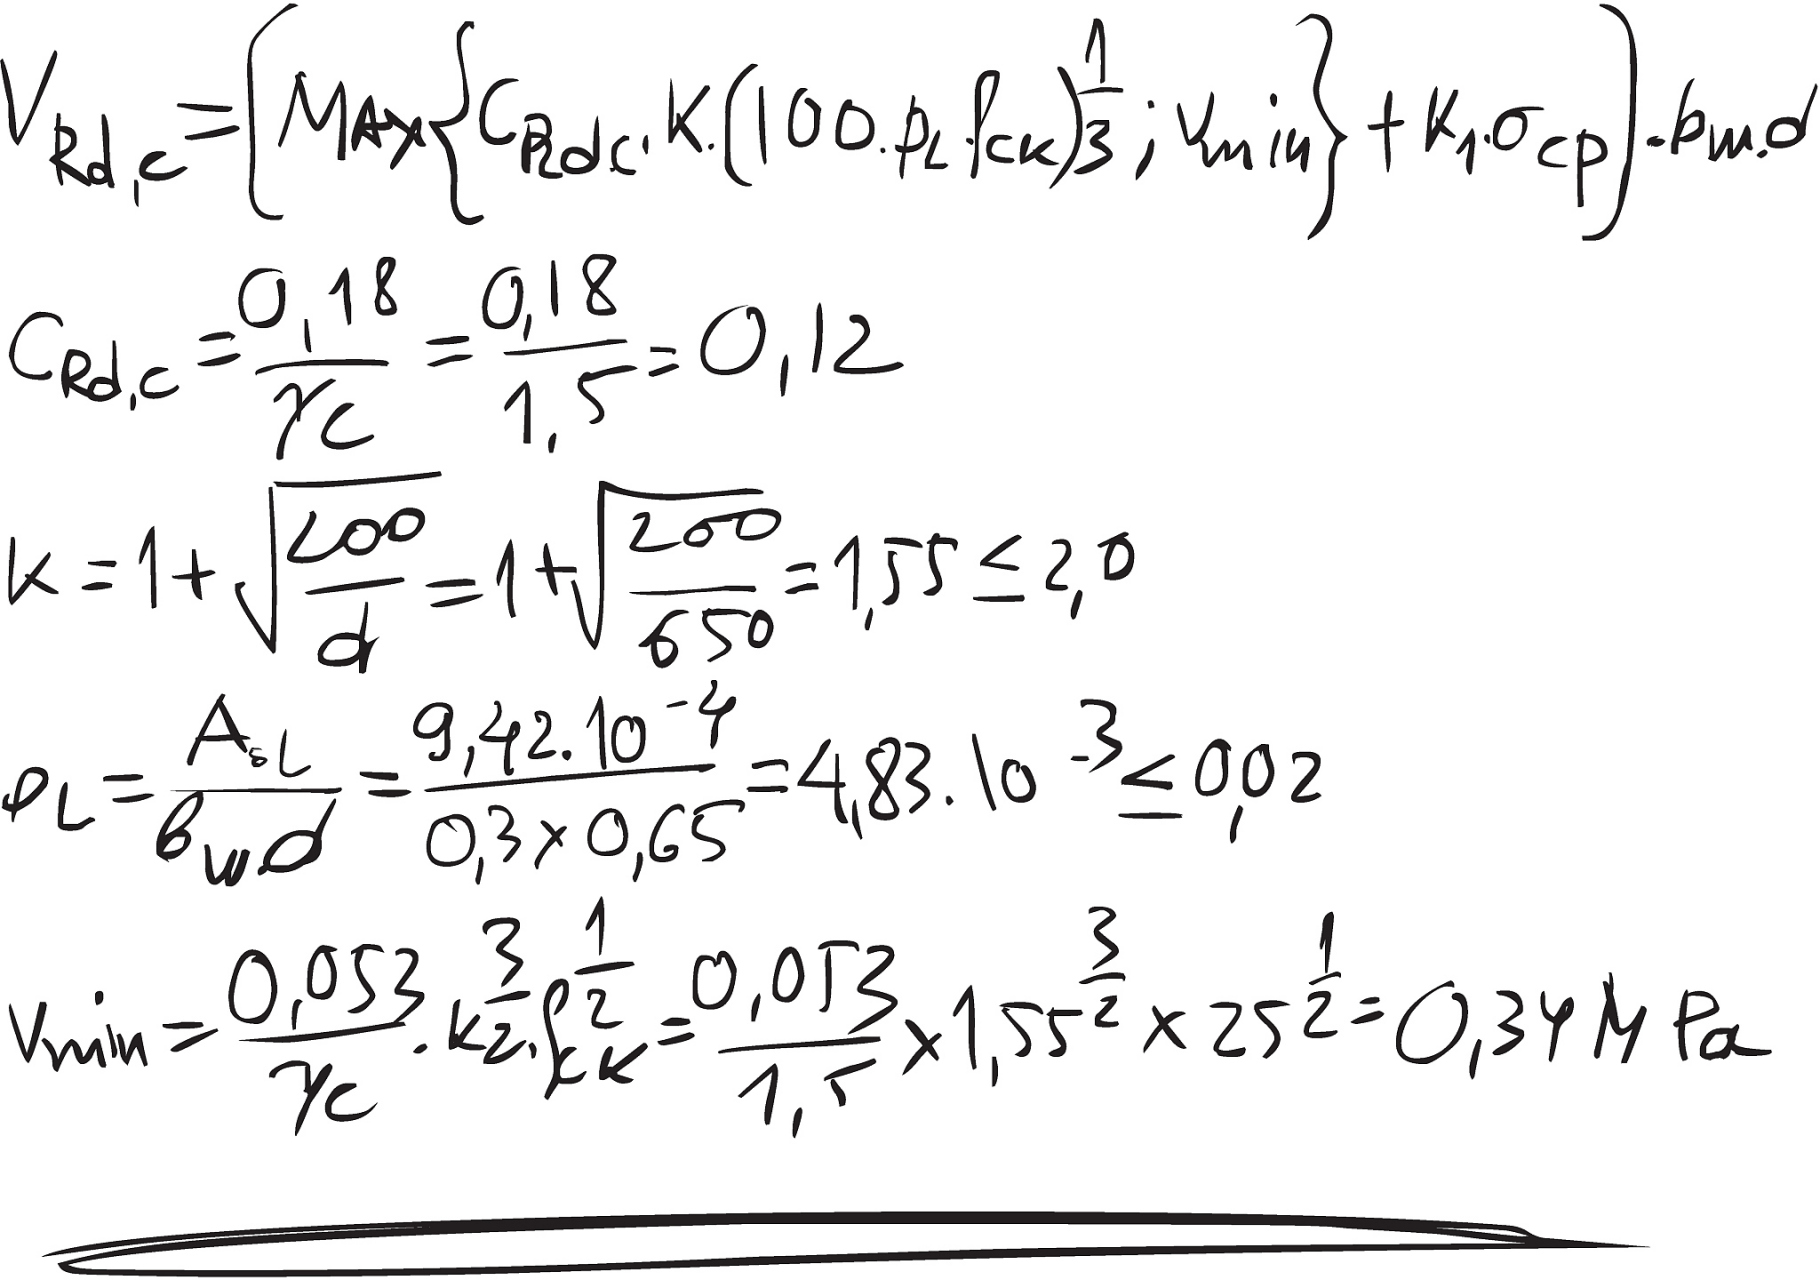 V_Rd,c = [MAX{C_Rd,c · K · (100 · ρ_L · f_ck)^(1/3) ; v_min} + K_1 · σ_cp] · b_w · d
C_Rd,c = 0,18/γ_c = 0,18/1,5 = 0,12
K = 1 + √(200/d) = 1 + √(200/650) = 1,55 ≤ 2,0
ρ_L = A_sL/(b_w · d) = 9,42 · 10^-4/(0,3 × 0,65) = 4,83 · 10^-3 ≤ 0,02
v_min = 0,053/γ_c · K^(3/2) · f_ck^(1/2) = 0,053/1,5 × 1,55^(3/2) × 25^(1/2) = 0,34 MPa